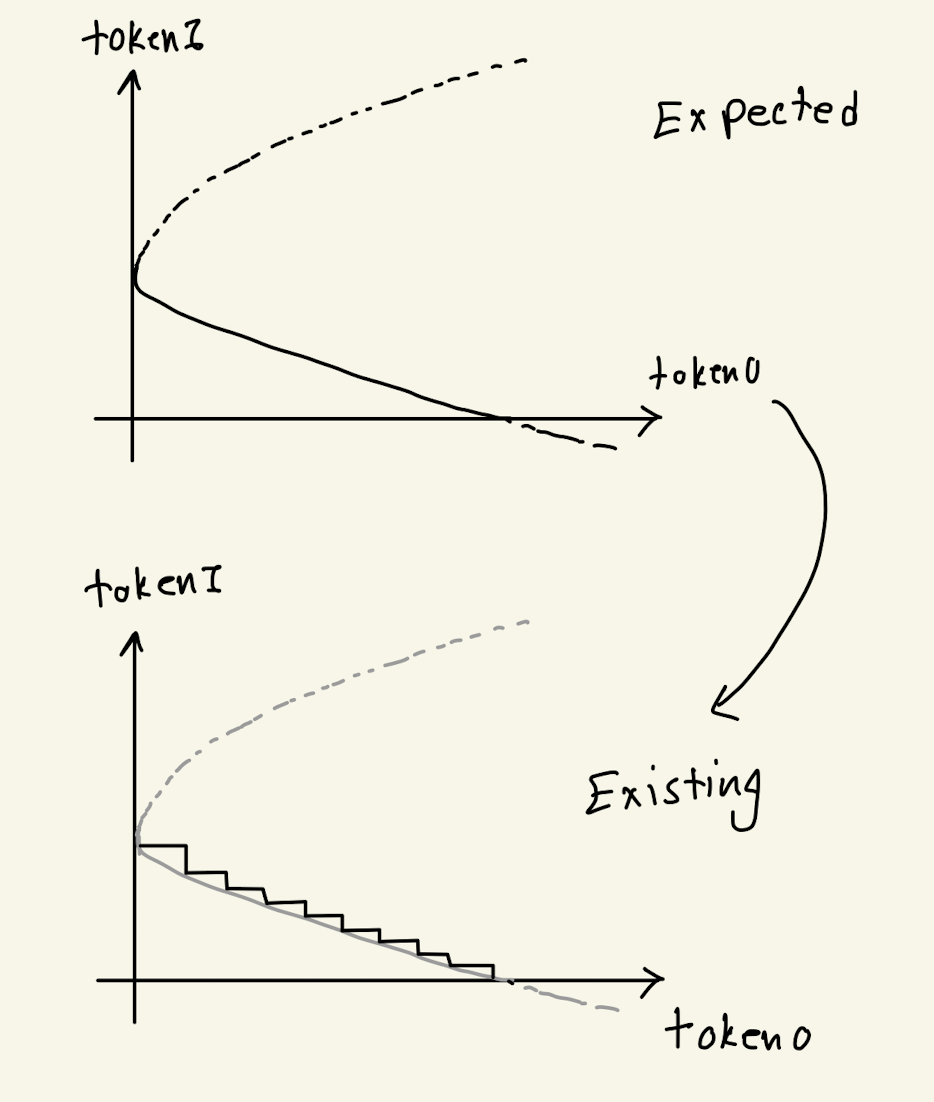 token1
Expected
token0
token1
Existing
token0